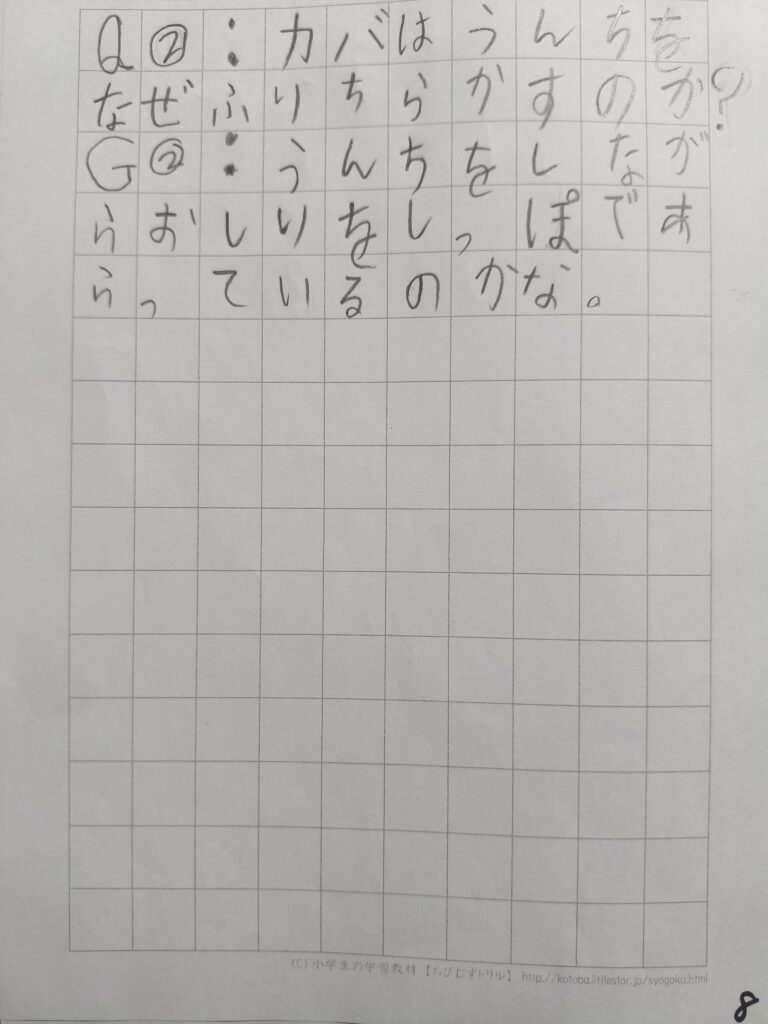 Q②：カバはうんちを
なぜふりちらかすのか?
G②：うんちをしなが
らおしりをしっぽであ
らっているのかな。
(C)小学生の学習教材【ちびむすドリル】 http://kotoba.littlestar.jp/syogaku.html
8